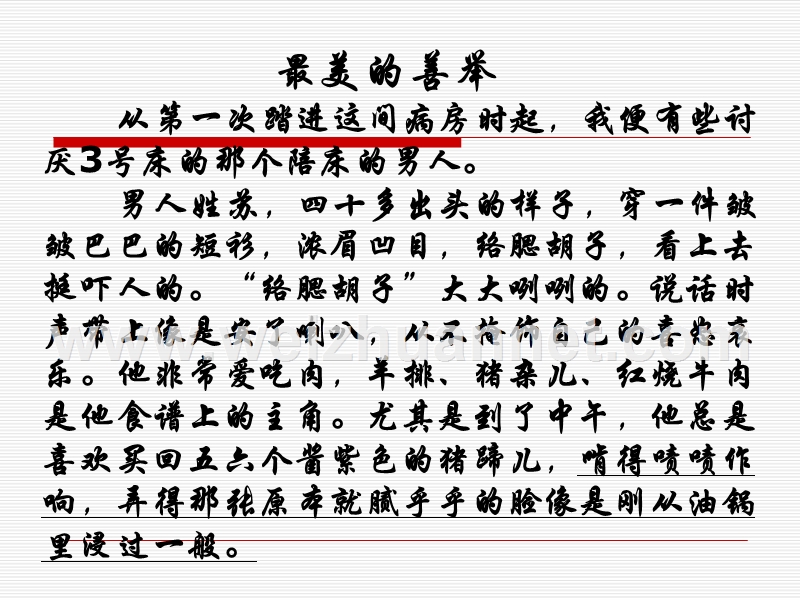 最美的善举
从第一次踏进这间病房时起，我便有些讨
厌3号床的那个陪床的男人。
男人姓苏，四十多出头的样子，穿一件皱
皱巴巴的短衫，浓眉凹目，络腮胡子，看上去
挺吓人的。“络腮胡子”大大咧咧的。说话时
声带上像是安了喇叭，从不掩饰自己的喜怒哀
乐。他非常爱吃肉，羊排、猪杂儿、红烧牛肉
是他食谱上的主角。尤其是到了中午，他总是
喜欢买回五六个酱紫色的猪蹄儿，啃得啧啧作
响，弄得那张原本就腻乎乎的脸像是刚从油锅
里浸过一般。
www.weizhuannet.com